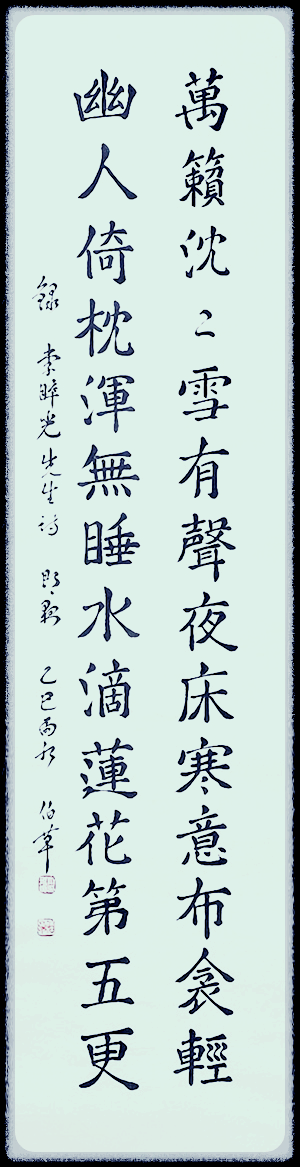 萬籟沈〻雪有聲夜床寒意布衾輕
幽人倚枕渾無睡水滴蓮花第五更
錄 李睟光先生詩 乙巳雨水 伯